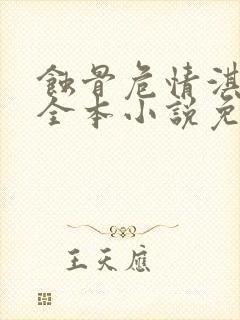 蝕骨危情淇
全本小說免
王天應